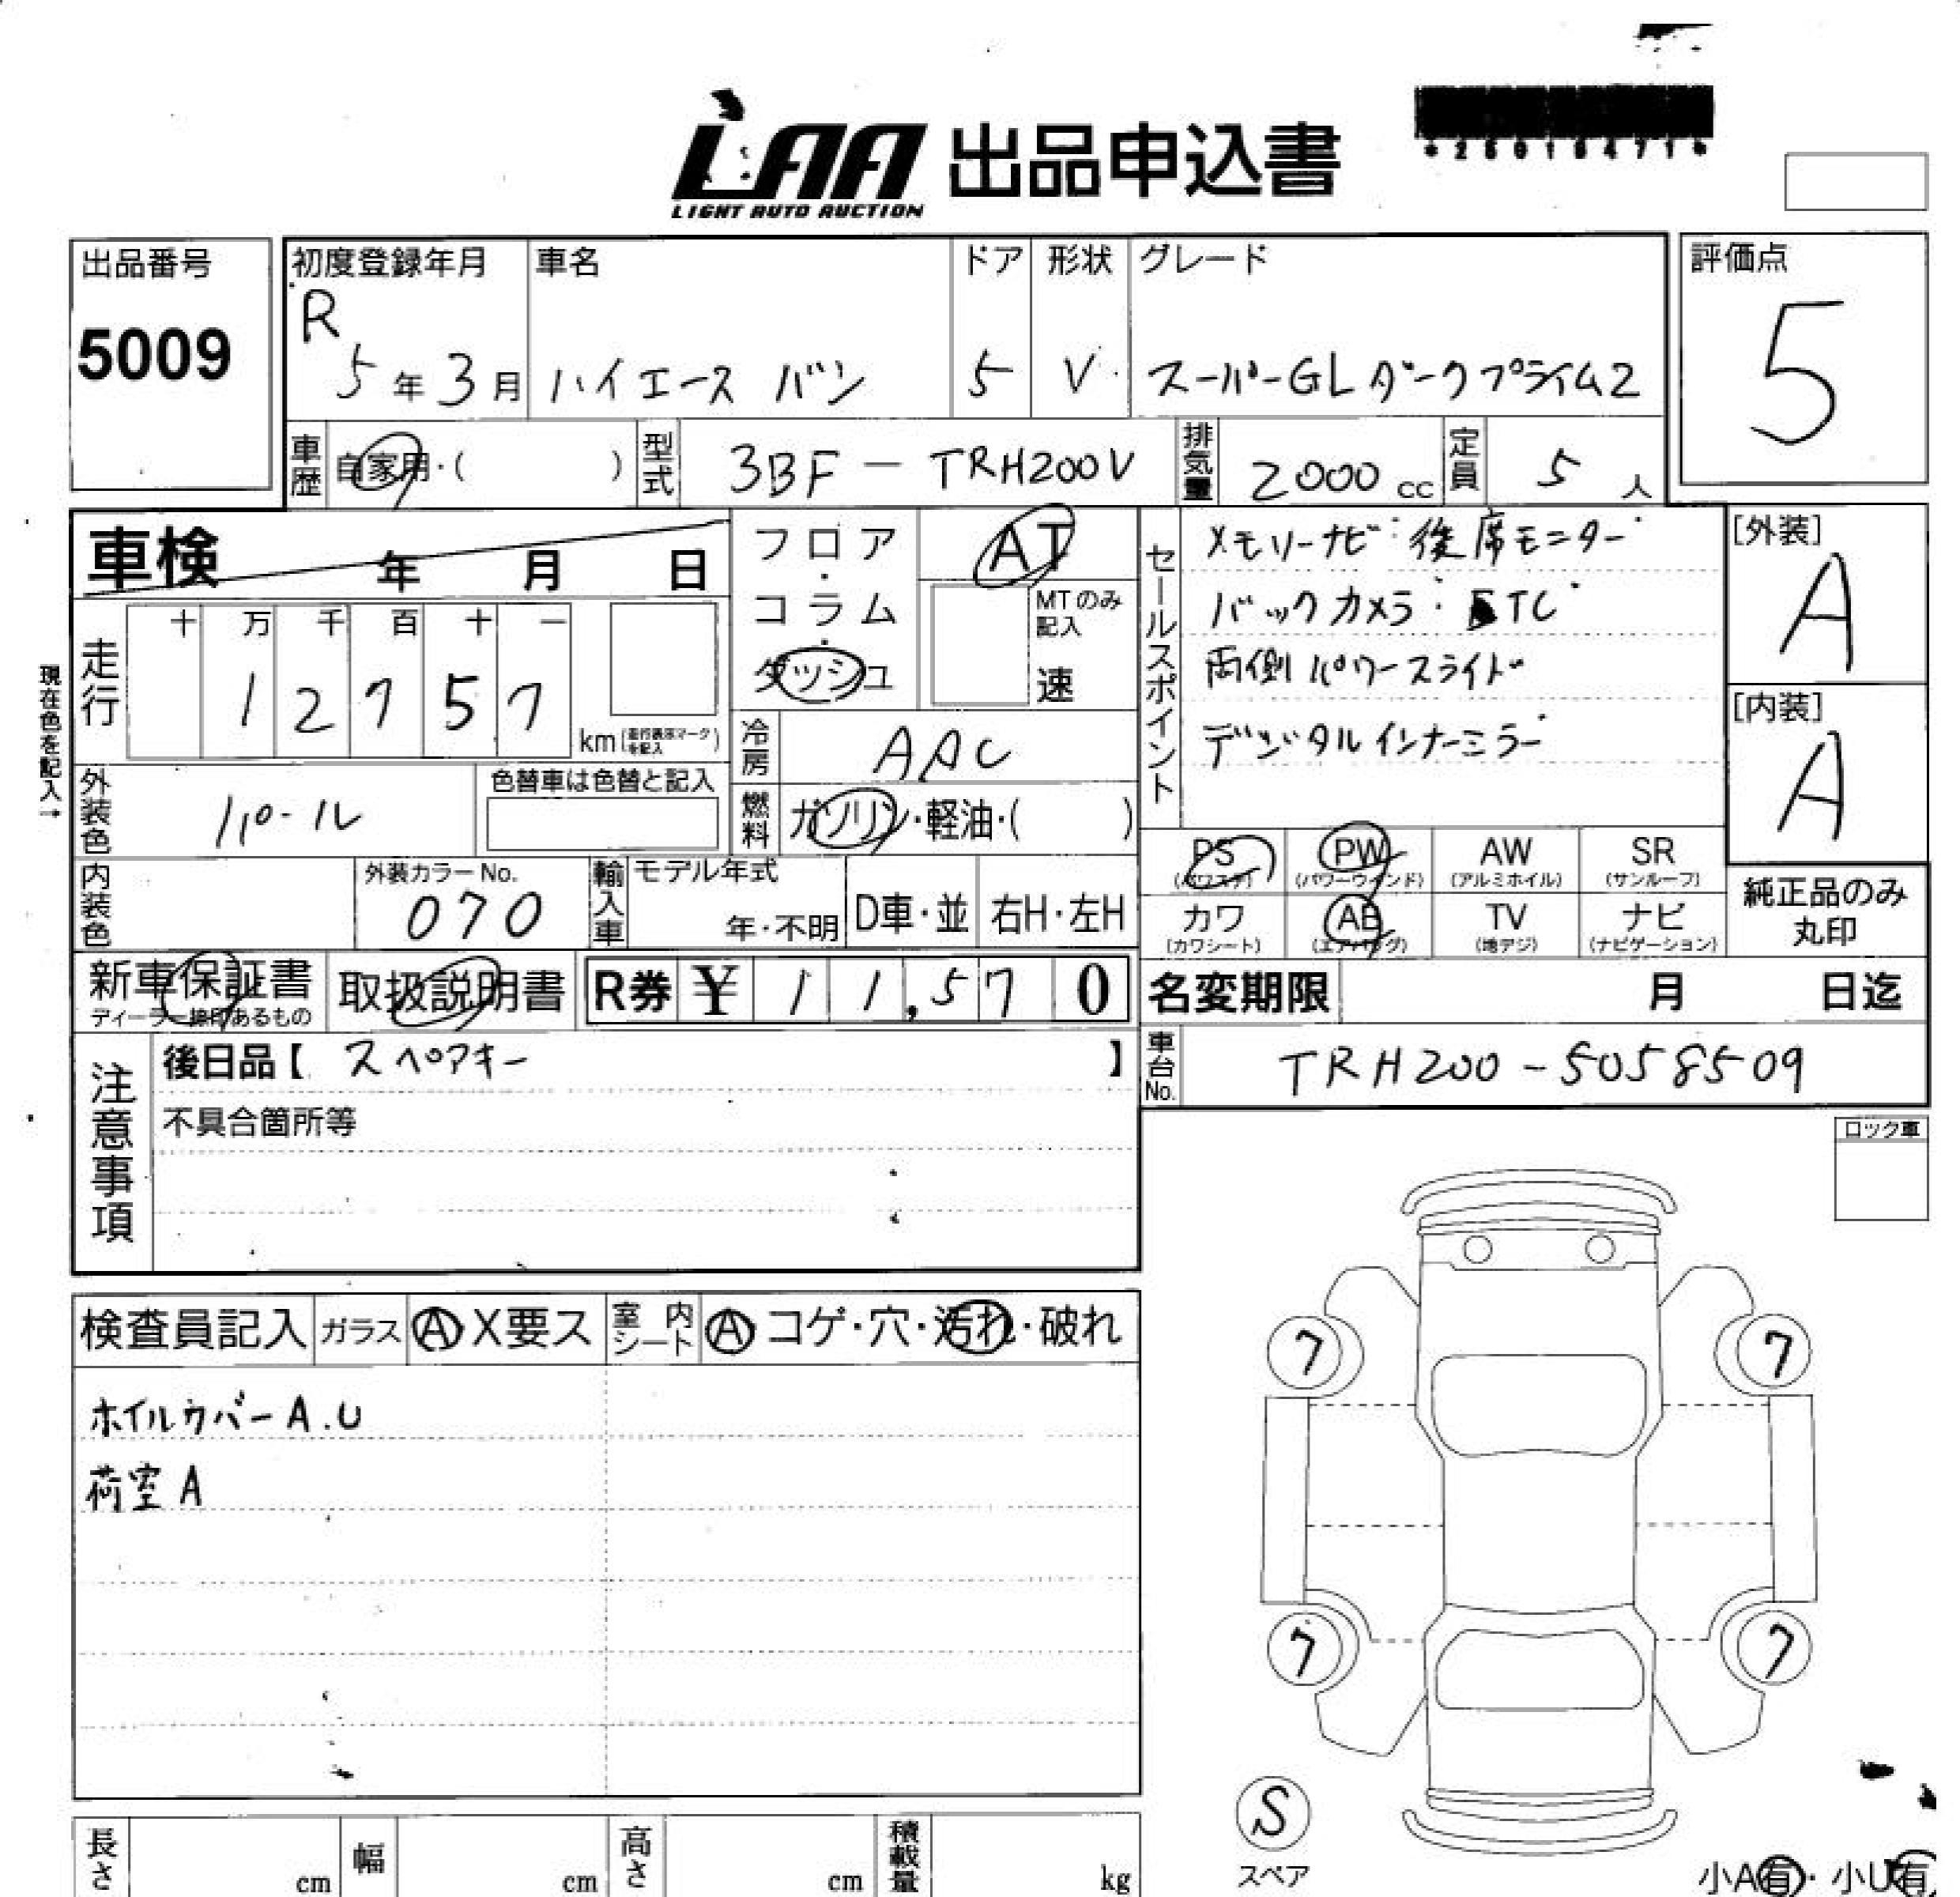 LAA 出品申込書
LIGHT AUTO AUCTION
出品番号
5009
初度登録年月
R
5年3月
車名
ハイエース バン
ドア
5
形状
V
グレード
スーパーGLダークプライム2
評価点
5
車歴
自家用・( )
型式
3BF-TRH200V
排気量
2000cc
定員
5人
車検 年 月 日
フロア・コラム・ダッシュ
AT
MTのみ記入
速
セールスポイント
メモリーナビ・後席モニター
バックカメラ・ETC
両側パワースライド
デジタルインナーミラー
[外装]
A
[内装]
A
現在色を記入→
走行
十 万 千 百 十 一
1 2 7 5 7
km(走行表示マークを記入)
冷房
AAC
燃料
ガソリン・軽油・( )
外装色
パール
色替車は色替と記入
内装色
外装カラーNo.
070
輸入車
モデル年式
年・不明
D車・並
右H・左H
PS
(パワステ)
PW
(パワーウインド)
AW
(アルミホイル)
SR
(サンルーフ)
カワ
(カワシート)
AB
(エアバッグ)
TV
(地デジ)
ナビ
(ナビゲーション)
純正品のみ
丸印
新車保証書
取扱説明書
R券 ¥ 11,570
名変期限 月 日迄
車台No.
TRH200-5058509
注意事項
後日品【 スペアキー 】
不具合箇所等
ロック車
検査員記入
ガラス
A X要ス
室内シート
A コゲ・穴・汚れ・破れ
ホイルカバーA.U
荷室A
7
7
7
7
S
スペア
長さ cm
幅 cm
高さ cm
積載量 kg
小A有・小U有